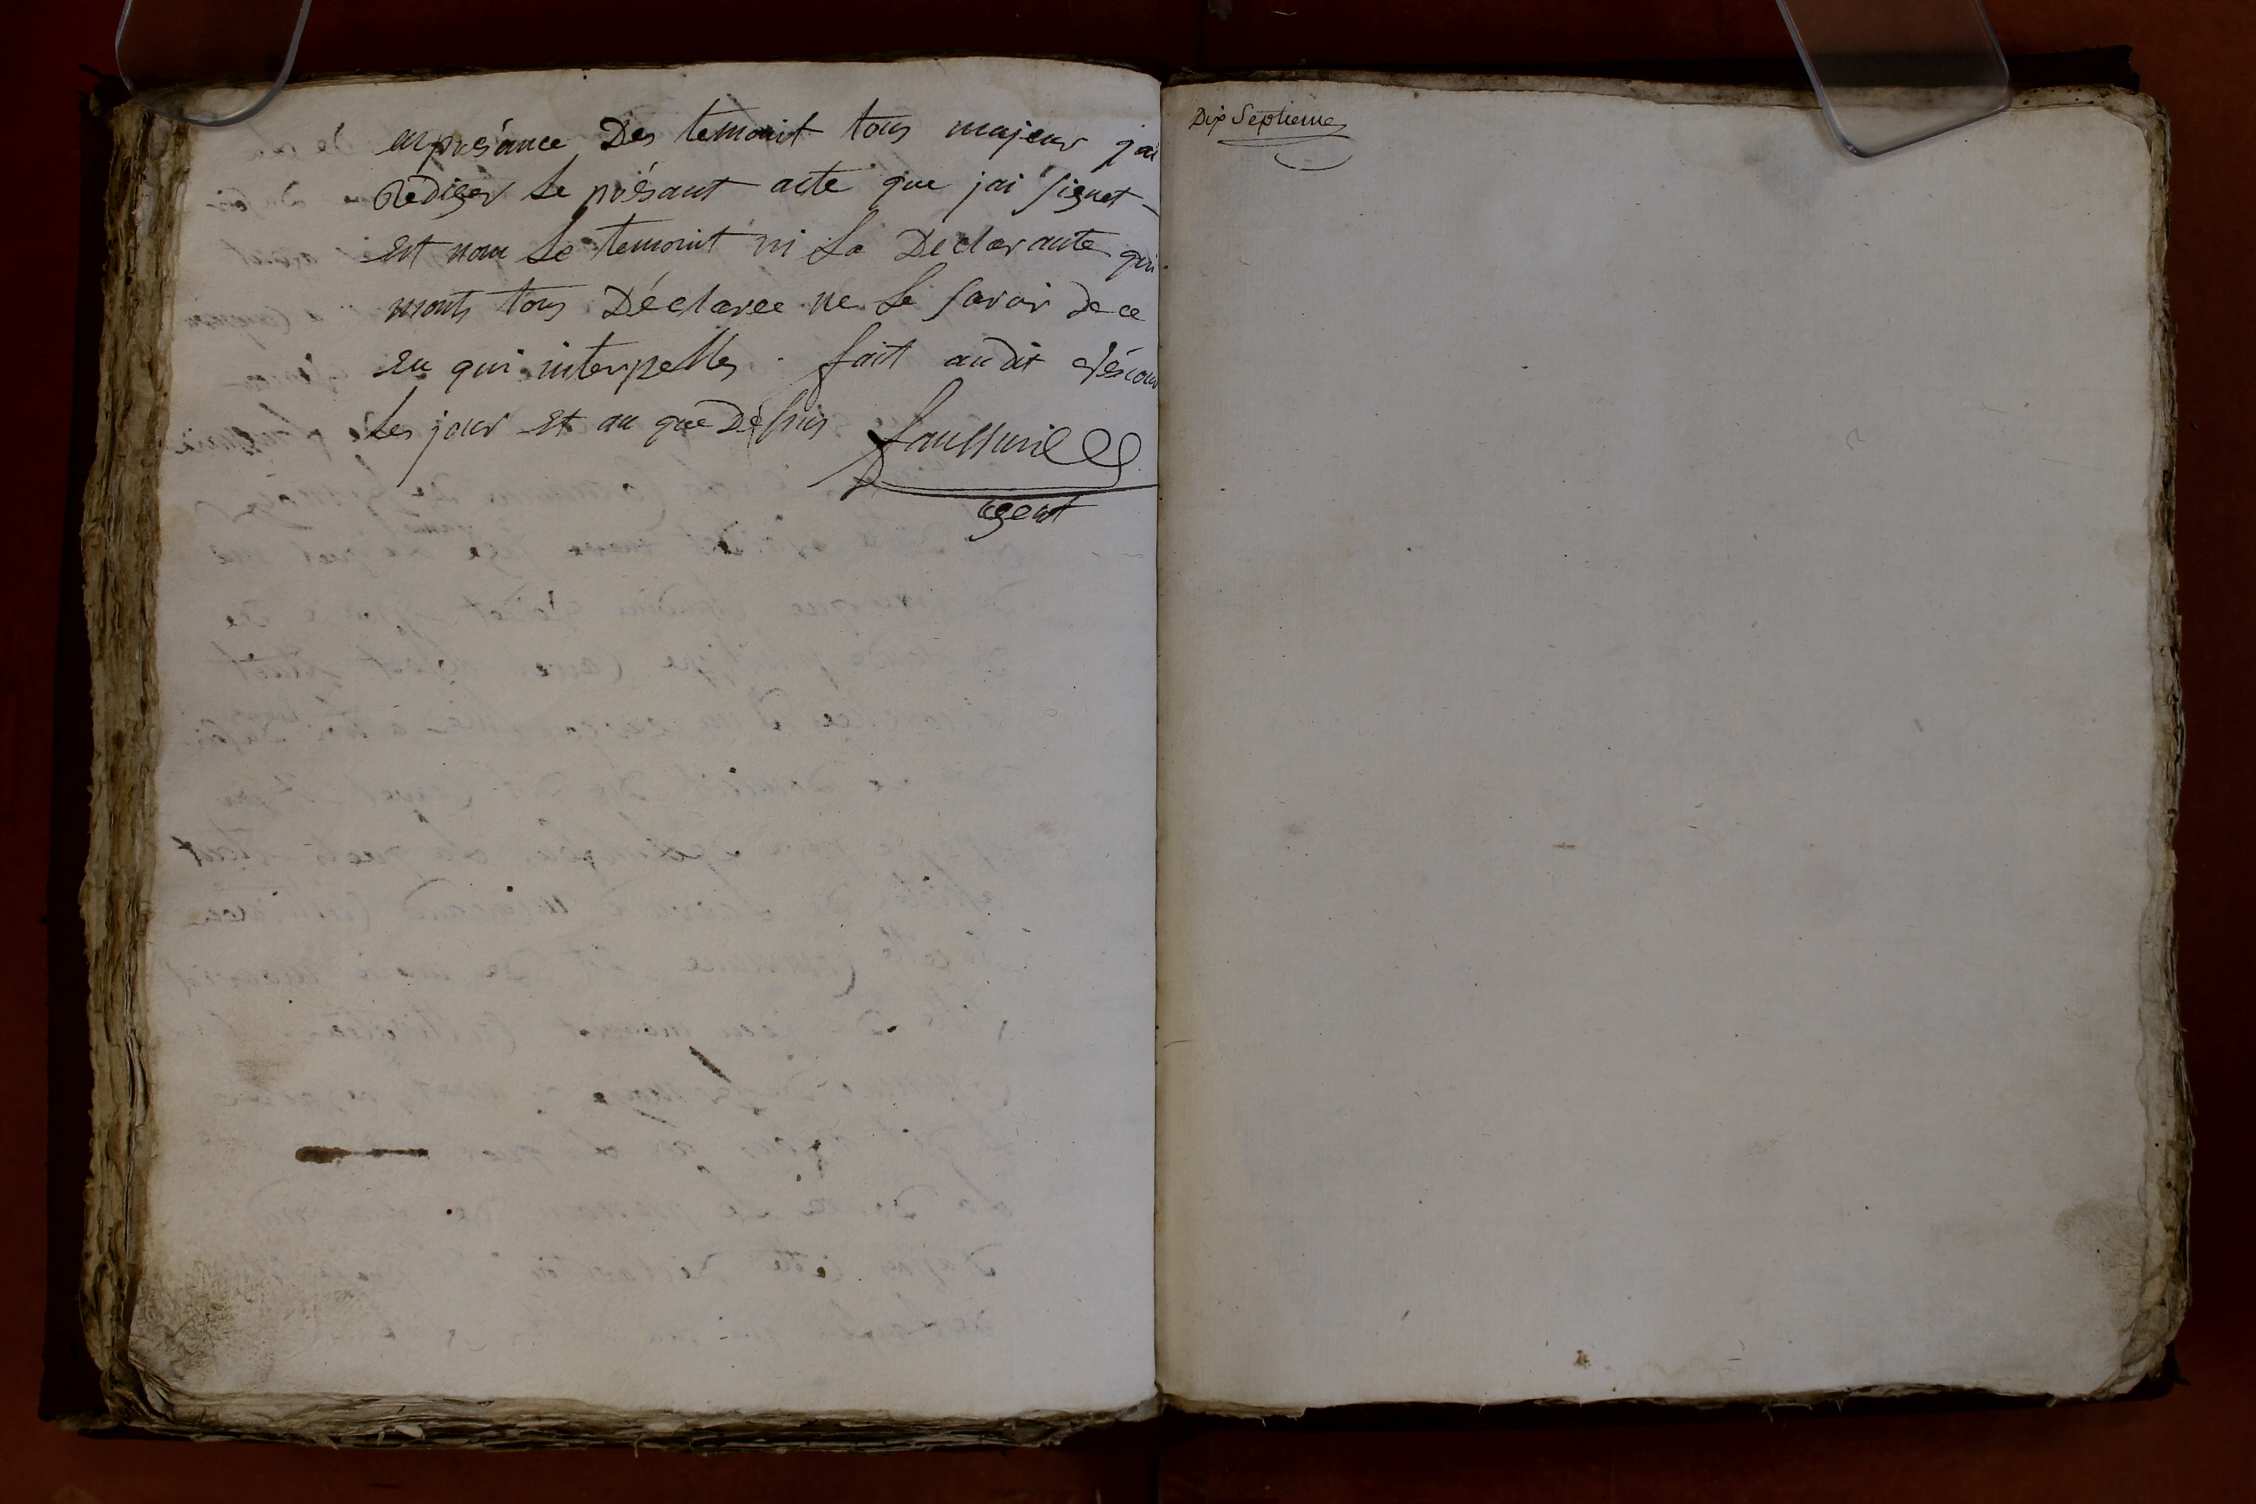 enprésance Des temoint tous majeur jai
Rediger Le présant acte que jai signet
est non Le temoint ni La Declarante qui
monts tous Déclaree ne Le savoir de ce
en qui interpelles. fait audit
Les jour et an que Dessus
agent
Dix Septieme